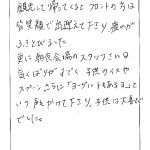 観光して帰ってくると フロントの方は
皆笑顔で出迎えて下さり、疲れが
ふきとびました
更に朝食会場のスタッフさんは
目くばりがすごく 子供のイスや
スプーン、さらに「ヨーグルトもあるよ」って
いつも 声かけて下さり、子供は大喜び
でした。